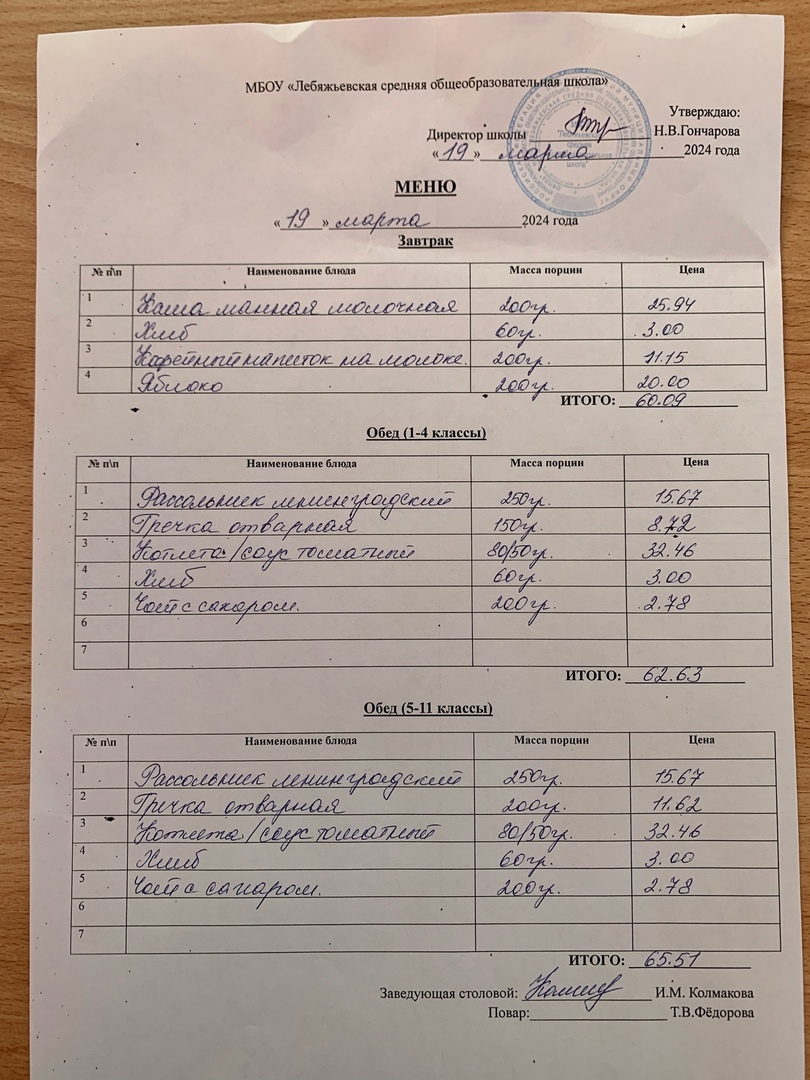 МБОУ «Лебяжьевская средняя общеобразовательная школа»
Утверждаю:
Директор школы Н.В.Гончарова
«19» марта 2024 года
МЕНЮ
«19» марта 2024 года
Завтрак
№ п\п Наименование блюда Масса порции Цена
1 Каша манная молочная 200гр. 25.94
2 Хлеб 60гр. 3.00
3 Кофейный напиток на молоке. 200гр. 11.15
4 Яблоко 200гр. 20.00
ИТОГО: 60.09
Обед (1-4 классы)
№ п\п Наименование блюда Масса порции Цена
1 Рассольник ленинградский 250гр. 15.67
2 Гречка отварная 150гр. 8.72
3 Котлета/соус томатный 80/50гр. 32.46
4 Хлеб 60гр. 3.00
5 Чай с сахаром. 200гр. 2.78
6
7
ИТОГО: 62.63
Обед (5-11 классы)
№ п\п Наименование блюда Масса порции Цена
1 Рассольник ленинградский 250гр. 15.67
2 Гречка отварная 200гр. 11.62
3 Котлета/соус томатный 80/50гр. 32.46
4 Хлеб 60гр. 3.00
5 Чай с сахаром. 200гр. 2.78
6
7
ИТОГО: 65.51
Заведующая столовой: И.М. Колмакова
Повар: Т.В.Фёдорова